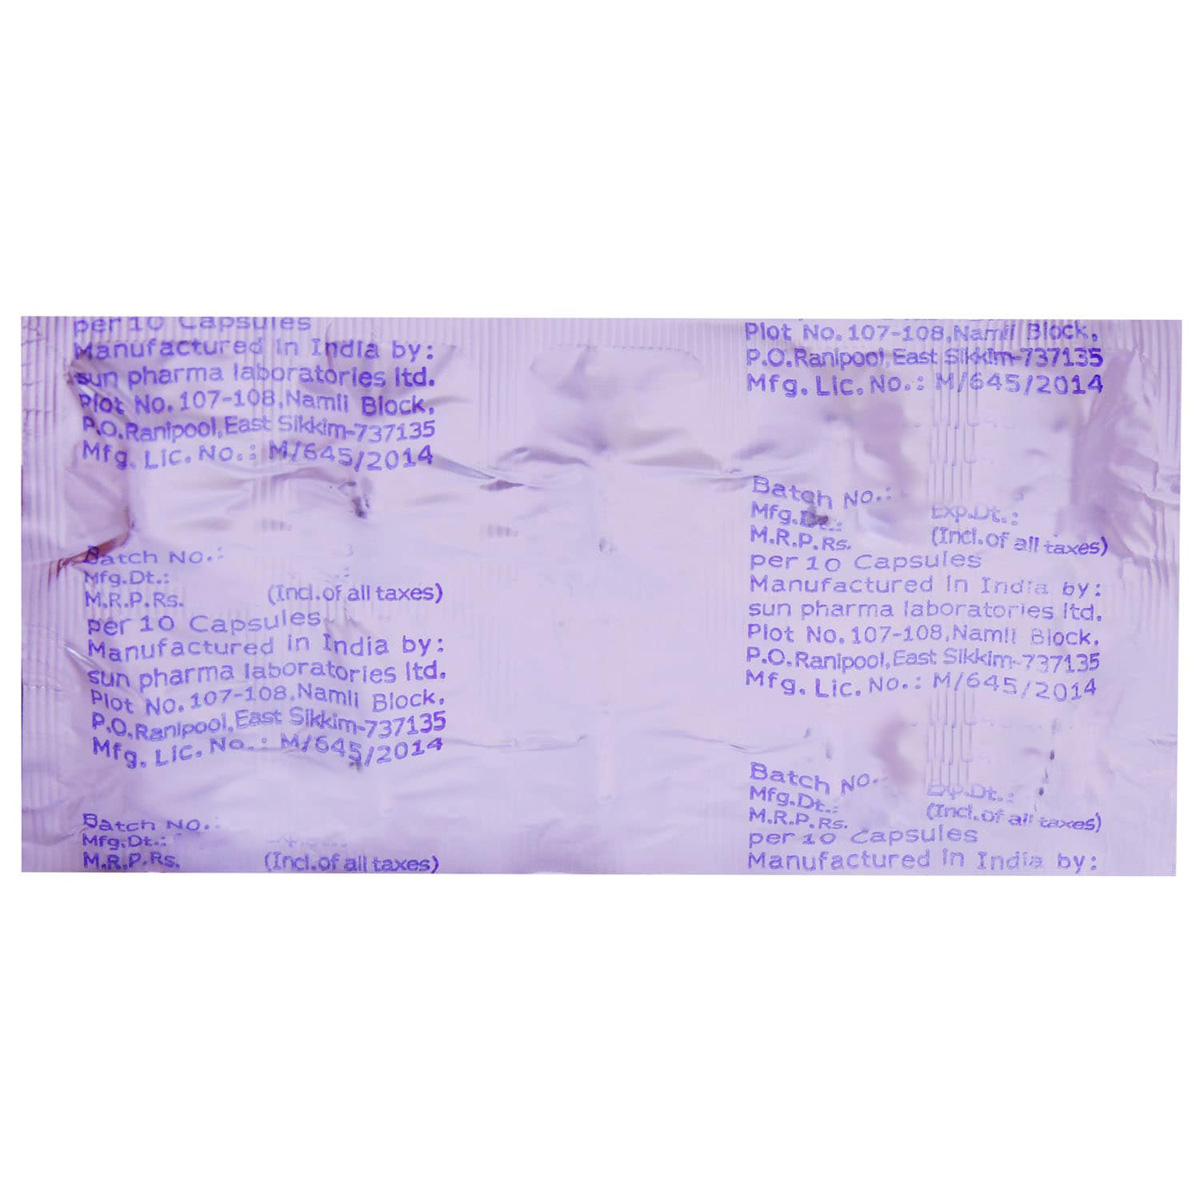 per 10 Capsules
Manufactured in India by:
sun pharma laboratories ltd.
Plot No. 107-108,Namli Block,
P.O.Ranipool,East Sikkim-737135
Mfg. Lic. No.: M/645/2014
Batch No.:
Mfg.Dt.:
M.R.P.Rs. (Incl.of all taxes)
per 10 Capsules
Manufactured in India by:
sun pharma laboratories ltd.
Plot No. 107-108,Namli Block,
P.O.Ranipool,East Sikkim-737135
Mfg. Lic. No.: M/645/2014
Batch No.:
Mfg.Dt.:
M.R.P.Rs. (Incl.of all taxes)
Plot No. 107-108,Namli Block,
P.O.Ranipool,East Sikkim-737135
Mfg. Lic. No.: M/645/2014
Batch No.:
Mfg.Dt.: Exp.Dt.:
M.R.P.Rs. (Incl.of all taxes)
per 10 Capsules
Manufactured in India by:
sun pharma laboratories ltd.
Plot No. 107-108,Namli Block,
P.O.Ranipool,East Sikkim-737135
Mfg. Lic. No.: M/645/2014
Batch No.
Mfg.Dt.: Exp.Dt.:
M.R.P.Rs. (Incl.of all taxes)
per 10 Capsules
Manufactured in India by: